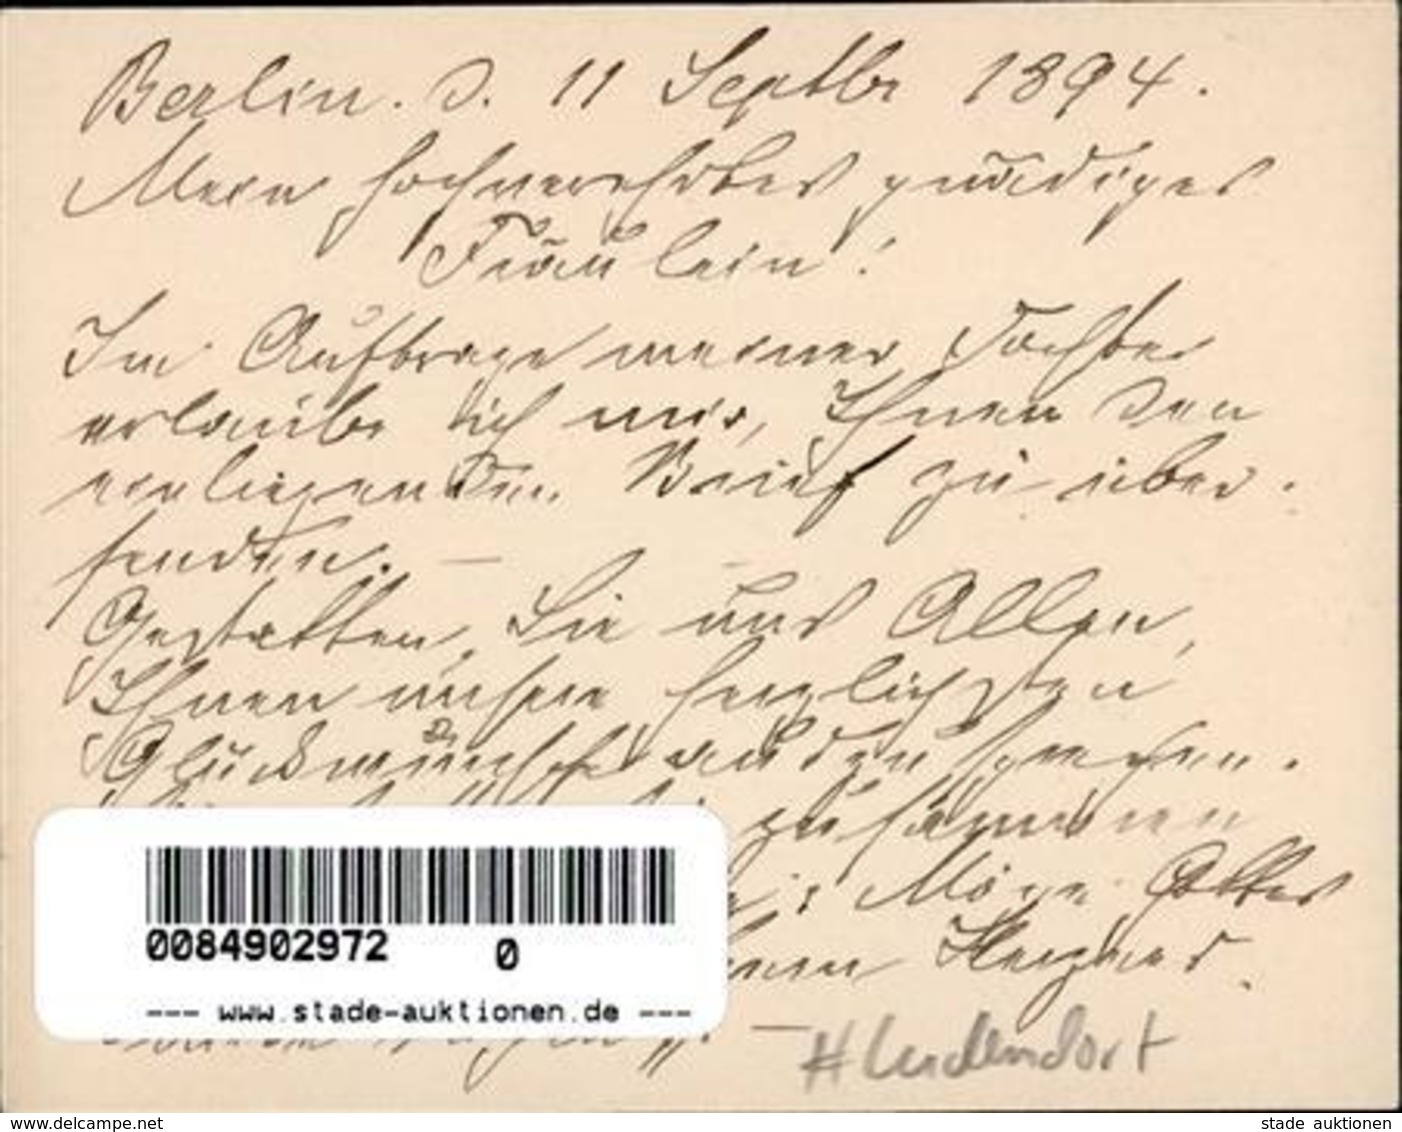 Berlin. d. 11 Septbr 1894.
Mein hochverehrtes gnädiges
Fräulein!
Im Auftrage meiner Tochter
erlaube ich mir, Ihnen den
einliegenden Brief zu über-
senden. —
Gestatten Sie uns Allen,
Ihnen unsere herzlichsten
Glückwünsche auszusprechen.
zu
: Möge Gottes
0084902972 0
--- www.stade-auktionen.de ---
www.delcampe.net
stade auktionen